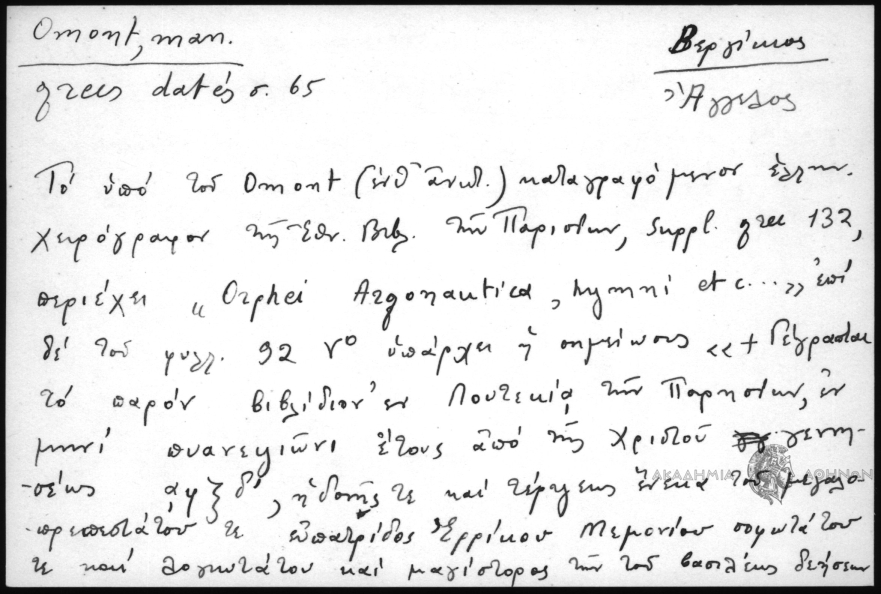 Omont, man.
grecs datés σ. 65
Βεργίκιος
Ἄγγελος
Τό ὑπό τοῦ Omont (ἐνθ' ἀνωτ.) καταγραφόμενον ἑλλην.
χειρόγραφον τῆς Ἐθν. Βιβλ. τῶν Παρισίων, Suppl. grec 132,
περιέχει „Orphei Argonautica, hymni etc...„ ἐπί
δέ τοῦ φυλλ. 92 vo ὑπάρχει ἡ σημείωσις «+ Γέγραπται
τό παρόν βιβλίδιον ἐν Λουτεκίᾳ τῶν Παρησίων, ἐν
μηνί πυανεψιῶνι ἔτους ἀπό τῆς Χριστοῦ γεννή-
-σέως αφξδ', ἡδονῆς τε καί τέρψεως ἕνεκα τοῦ μεγαλο-
-πρεπεστάτου τε εὐπατρίδος Ἐρρίκου Μεμονίου σοφωτάτου
τε καί λογιωτάτου καί μαγίστορος τῶν τοῦ βασιλέως δεήσεων
ΑΚΑΔΗΜΙΑ ΑΘΗΝΩΝ